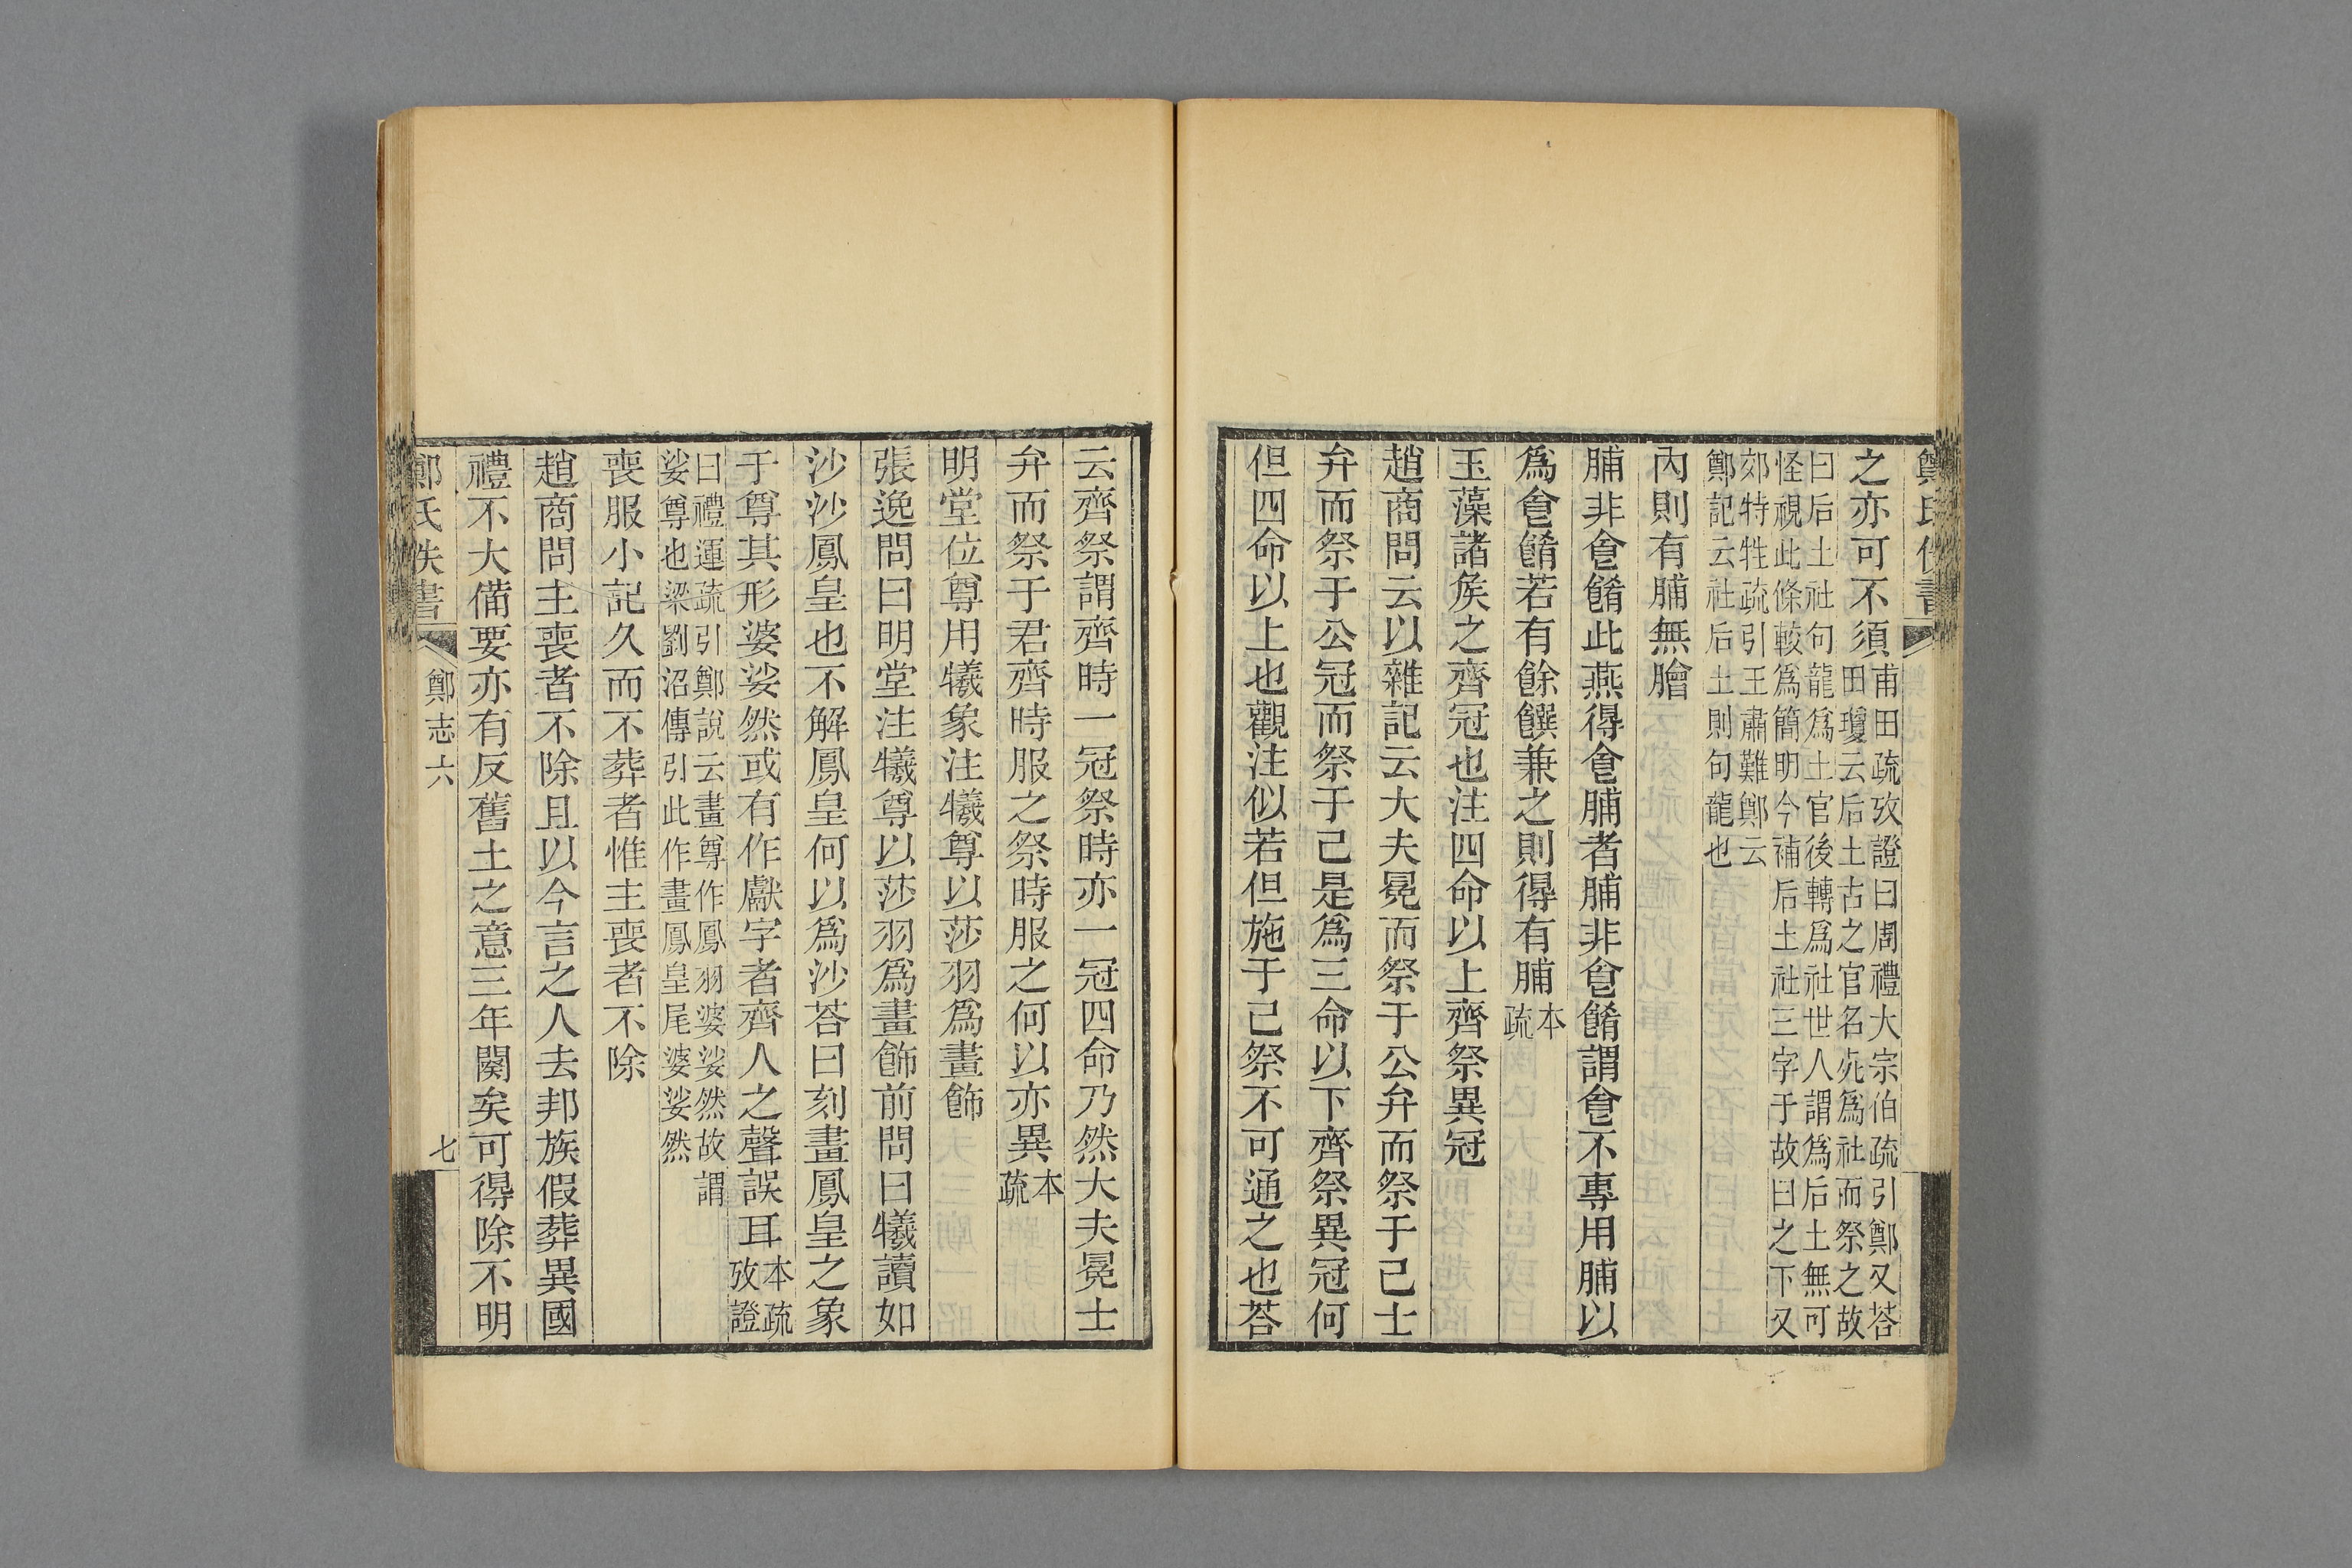 鄭氏佚書
之亦可不須甫田疏攷證曰周禮大宗伯疏引鄭又荅
田瓊云后土古之官名死爲社而祭之故
曰后土社句龍爲土官後轉爲社世人謂爲后土無可
怪視此條較爲簡明今補后土社三字于故曰之下又
郊特牲疏引王肅難鄭云
鄭記云社后土則句龍也
內則有脯無膾
脯非食餚此燕得食脯者脯非食餚謂食不專用脯以
爲食餚若有餘饌兼之則得有脯本
疏
玉藻諸矦之齊冠也注四命以上齊祭異冠
趙商問云以雜記云大夫冕而祭于公弁而祭于己士
弁而祭于公冠而祭于己是爲三命以下齊祭異冠何
但四命以上也觀注似若但施于己祭不可通之也荅
云齊祭謂齊時一冠祭時亦一冠四命乃然大夫冕士
弁而祭于君齊時服之祭時服之何以亦異本
疏
明堂位尊用犧象注犧尊以莎羽爲畫飾
張逸問曰明堂注犧尊以莎羽爲畫飾前問曰犧讀如
沙沙鳳皇也不解鳳皇何以爲沙荅曰刻畫鳳皇之象
于尊其形婆娑然或有作獻字者齊人之聲誤耳本疏
攷證
曰禮運疏引鄭說云畫尊作鳳羽婆娑然故謂
娑尊也梁劉沼傳引此作畫鳳皇尾婆娑然
喪服小記久而不葬者惟主喪者不除
趙商問主喪者不除且以今言之人去邦族假葬異國
禮不大備要亦有反舊土之意三年闋矣可得除不明
鄭氏佚書
鄭志六
七